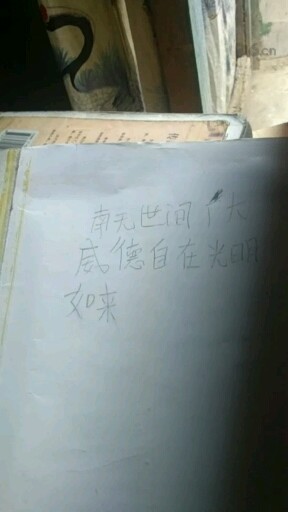 南无世间广大
威德自在光明
如来